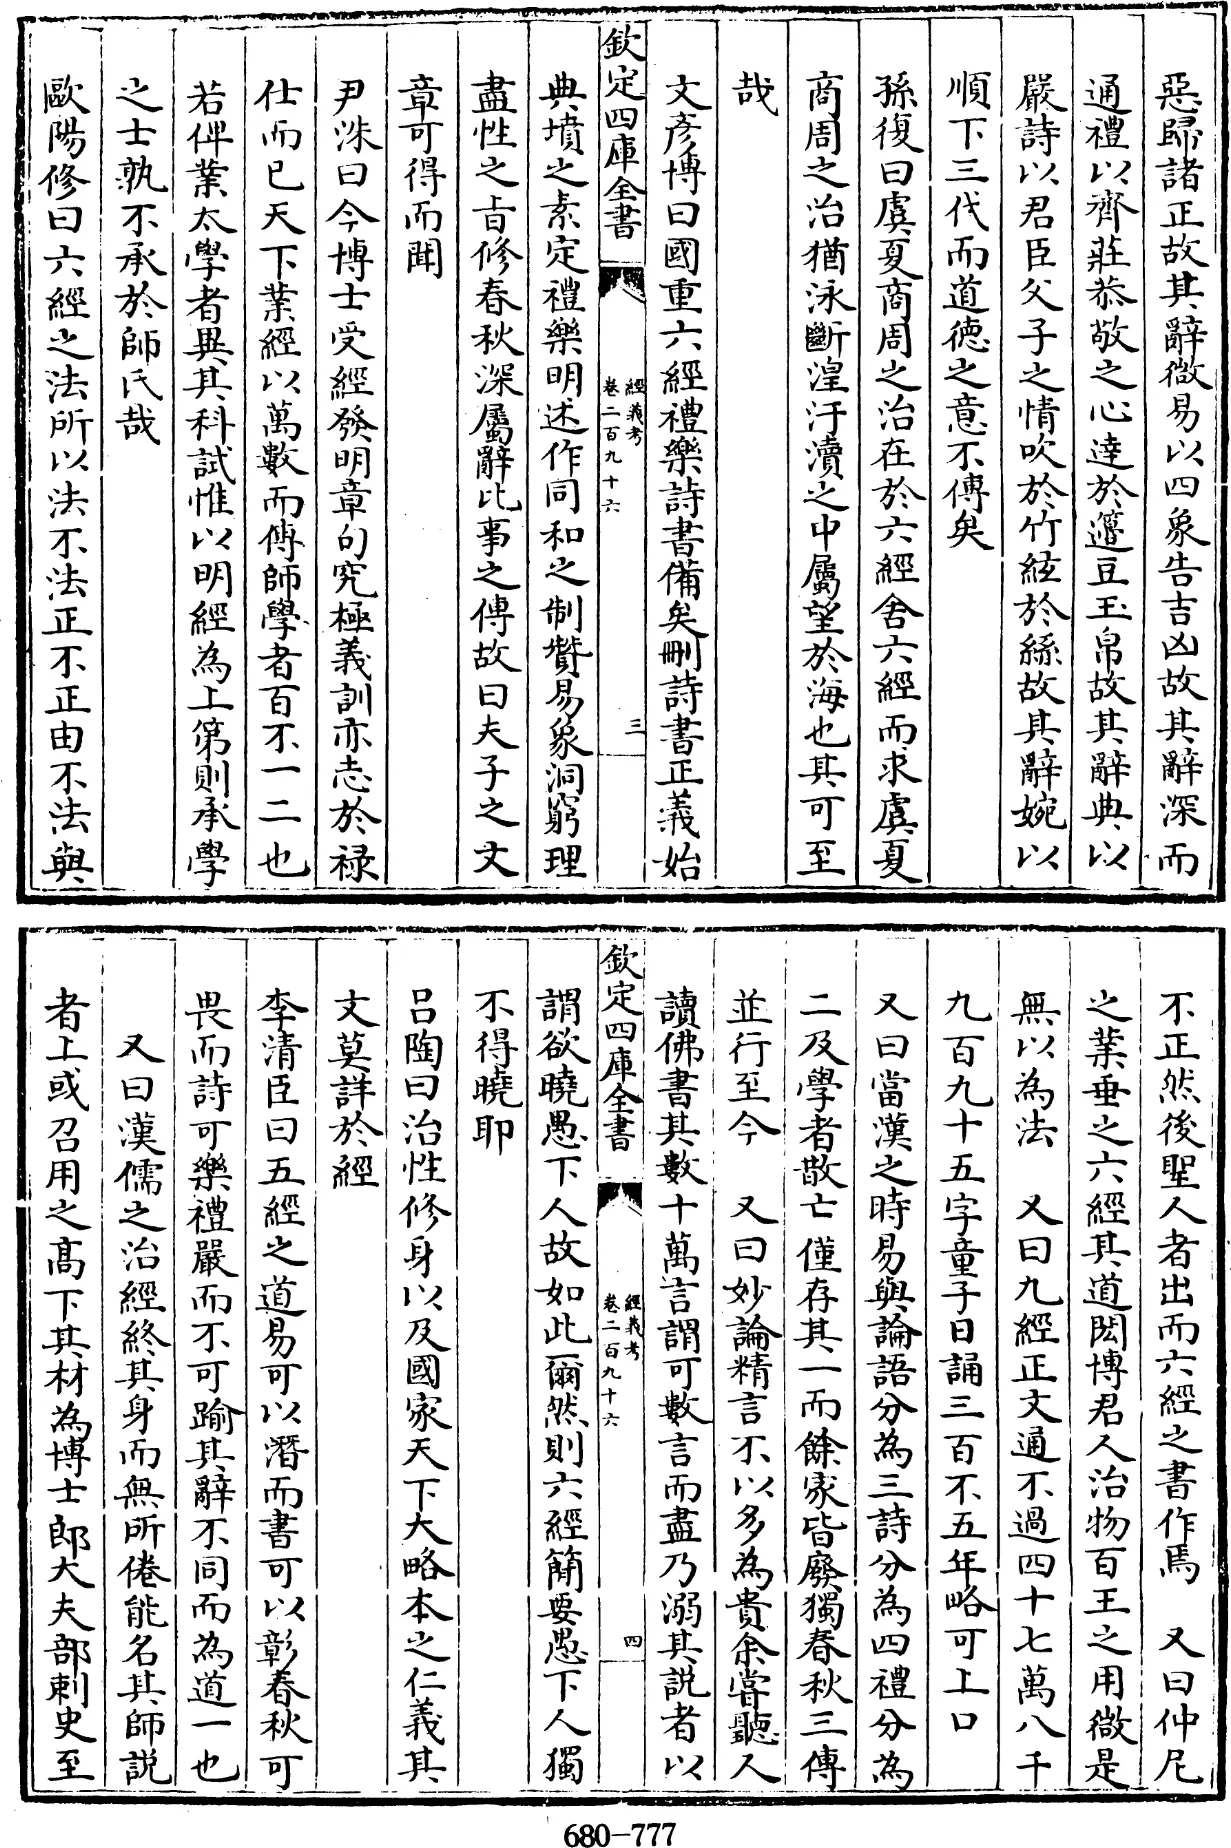 惡歸諸正故其辭微易以四象告吉凶故其辭深而
通禮以齊莊恭敬之心達於籩豆玉帛故其辭典以
嚴詩以君臣父子之情吹於竹絃於絲故其辭婉以
順下三代而道德之意不傳矣
孫復曰虞夏商周之治在於六經舍六經而求虞夏
商周之治猶泳斷湟汙瀆之中屬望於海也其可至
哉
文彥博曰國重六經禮樂詩書備矣刪詩書正義始
欽定四庫全書
經義考
卷二百九十六
三
典墳之素定禮樂明述作同和之制贊易象洞窮理
盡性之旨修春秋深屬辭比事之傳故曰夫子之文
章可得而聞
尹洙曰今博士受經發明章句究極義訓亦志於祿
仕而已天下業經以萬數而傳師學者百不一二也
若俾業太學者異其科試惟以明經為上第則承學
之士孰不承於師氏哉
歐陽修曰六經之法所以法不法正不正由不法與
不正然後聖人者出而六經之書作焉 又曰仲尼
之業垂之六經其道閎博君人治物百王之用微是
無以為法 又曰九經正文通不過四十七萬八千
九百九十五字童子日誦三百不五年略可上口
又曰當漢之時易與論語分為三詩分為四禮分為
二及學者散亡僅存其一而餘家皆廢獨春秋三傳
並行至今 又曰妙論精言不以多為貴余嘗聽人
讀佛書其數十萬言謂可數言而盡乃溺其說者以
欽定四庫全書
經義考
卷二百九十六
四
謂欲曉愚下人故如此爾然則六經簡要愚下人獨
不得曉耶
呂陶曰治性修身以及國家天下大略本之仁義其
文莫詳於經
李清臣曰五經之道易可以潛而書可以彰春秋可
畏而詩可樂禮嚴而不可踰其辭不同而為道一也
又曰漢儒之治經終其身而無所倦能名其師說
者上或召用之高下其材為博士郎大夫部刺史至
680-777